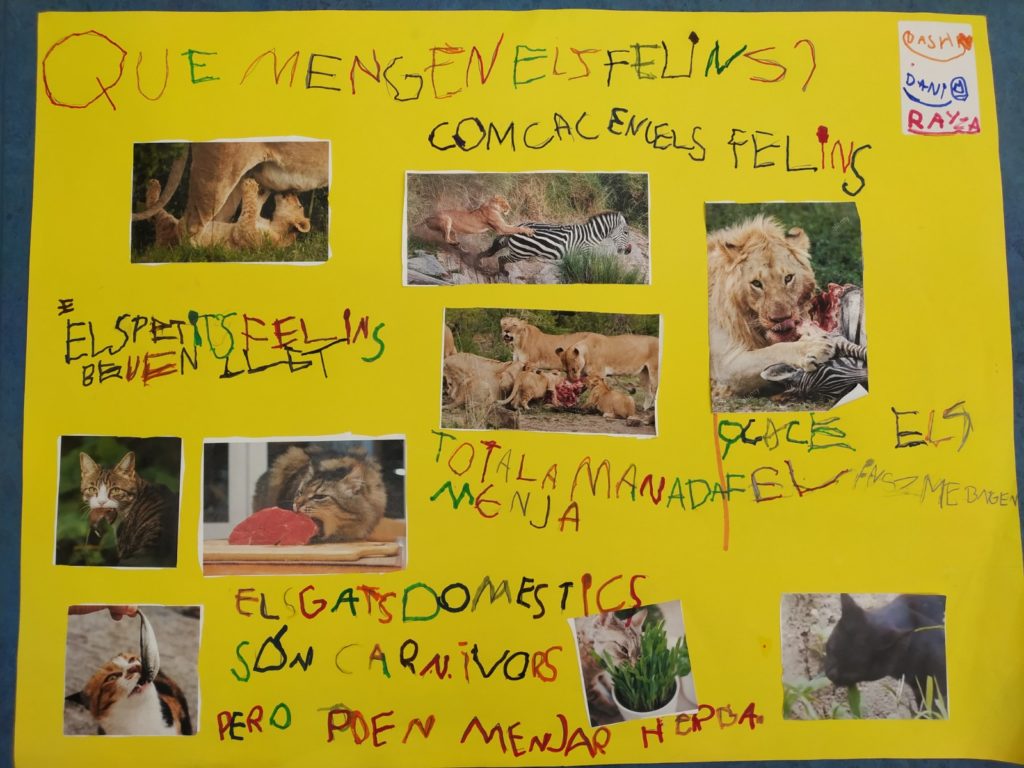 QUE MENGEN ELS FELINS?
DASHA
DANI
RAYZA
COM CACEN ELS FELINS
ELS PETITS FELINS
BEUEN LLET
TOTA LA MANADA
MENJA
ELS
FEL
ELS GATS DOMESTICS
SÓN CARNIVORS
PERO PDEN MENJAR HERBA.